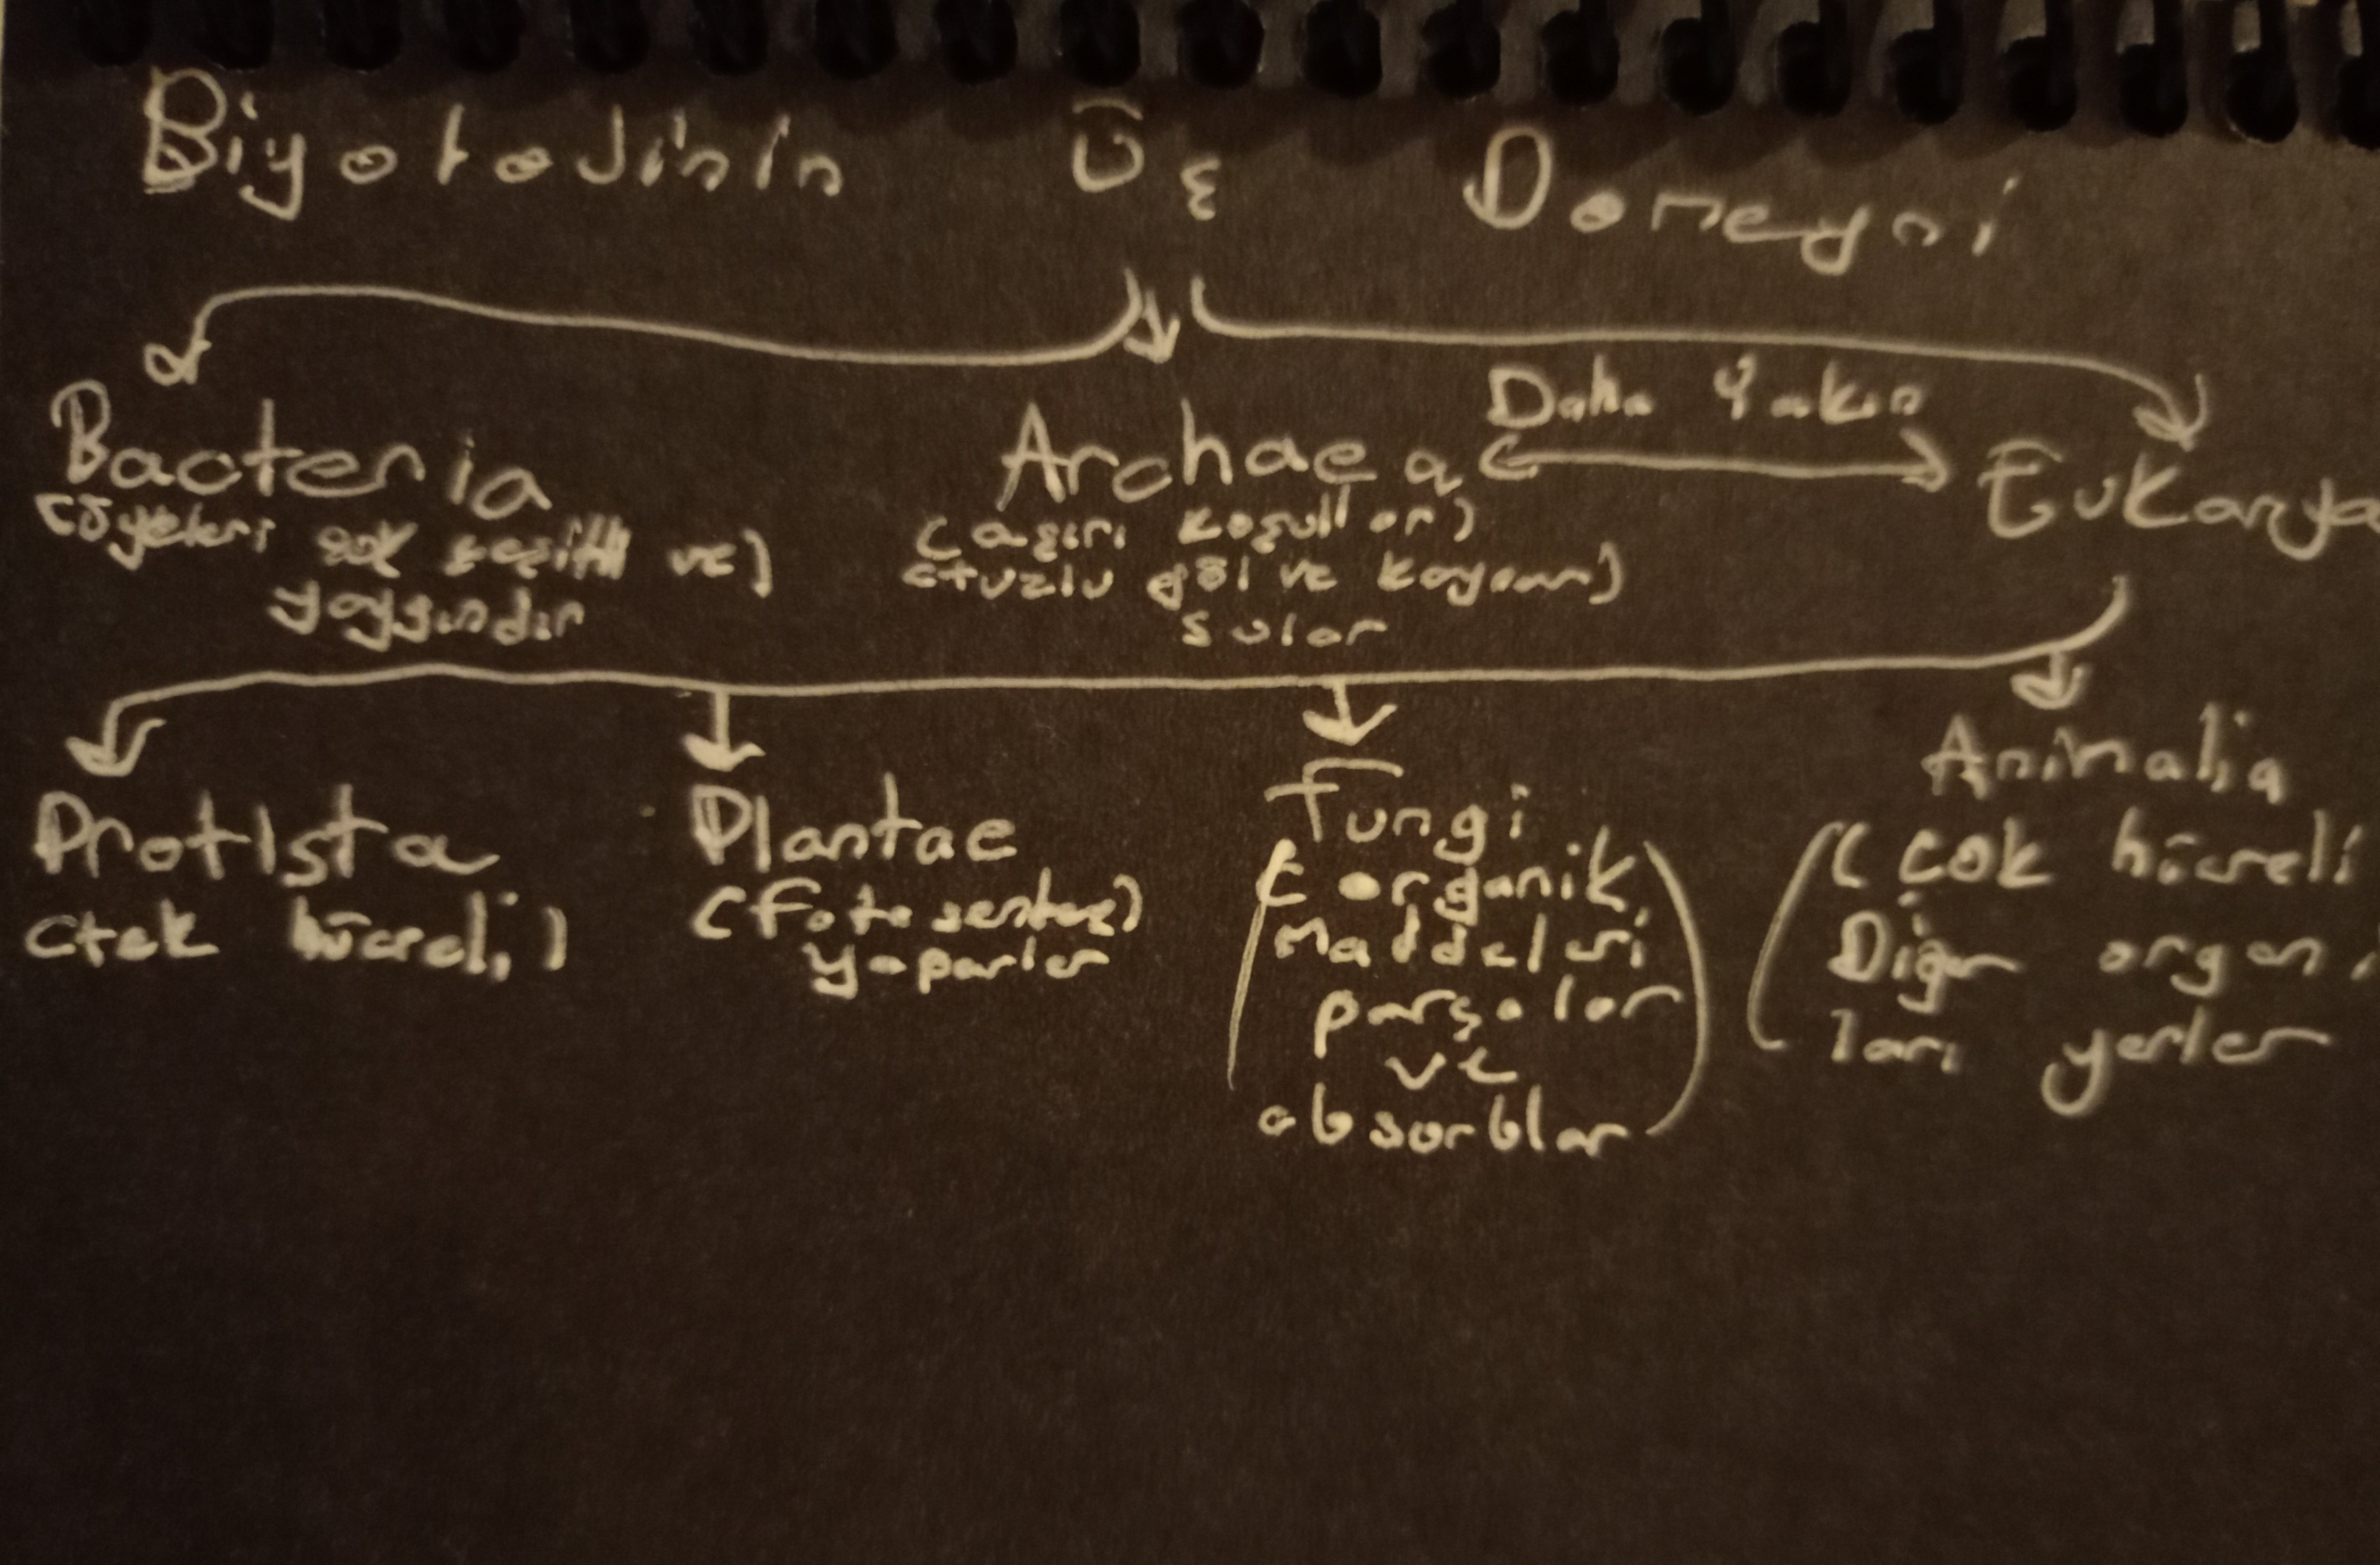 Biyolojinin Üç Domeyni
Daha Yakın
Bacteria Archaea Eukarya
(üyeleri çok çeşitli ve)
yaygındır
(aşırı koşullar)
(tuzlu göl ve kaynar)
sular
Protista
(tek hücreli)
Plantae
(fotosentez)
yaparlar
Fungi
(organik
maddeleri
parçalar
ve
absorblar)
Animalia
(çok hücreli
Diğer organi
ları yerler